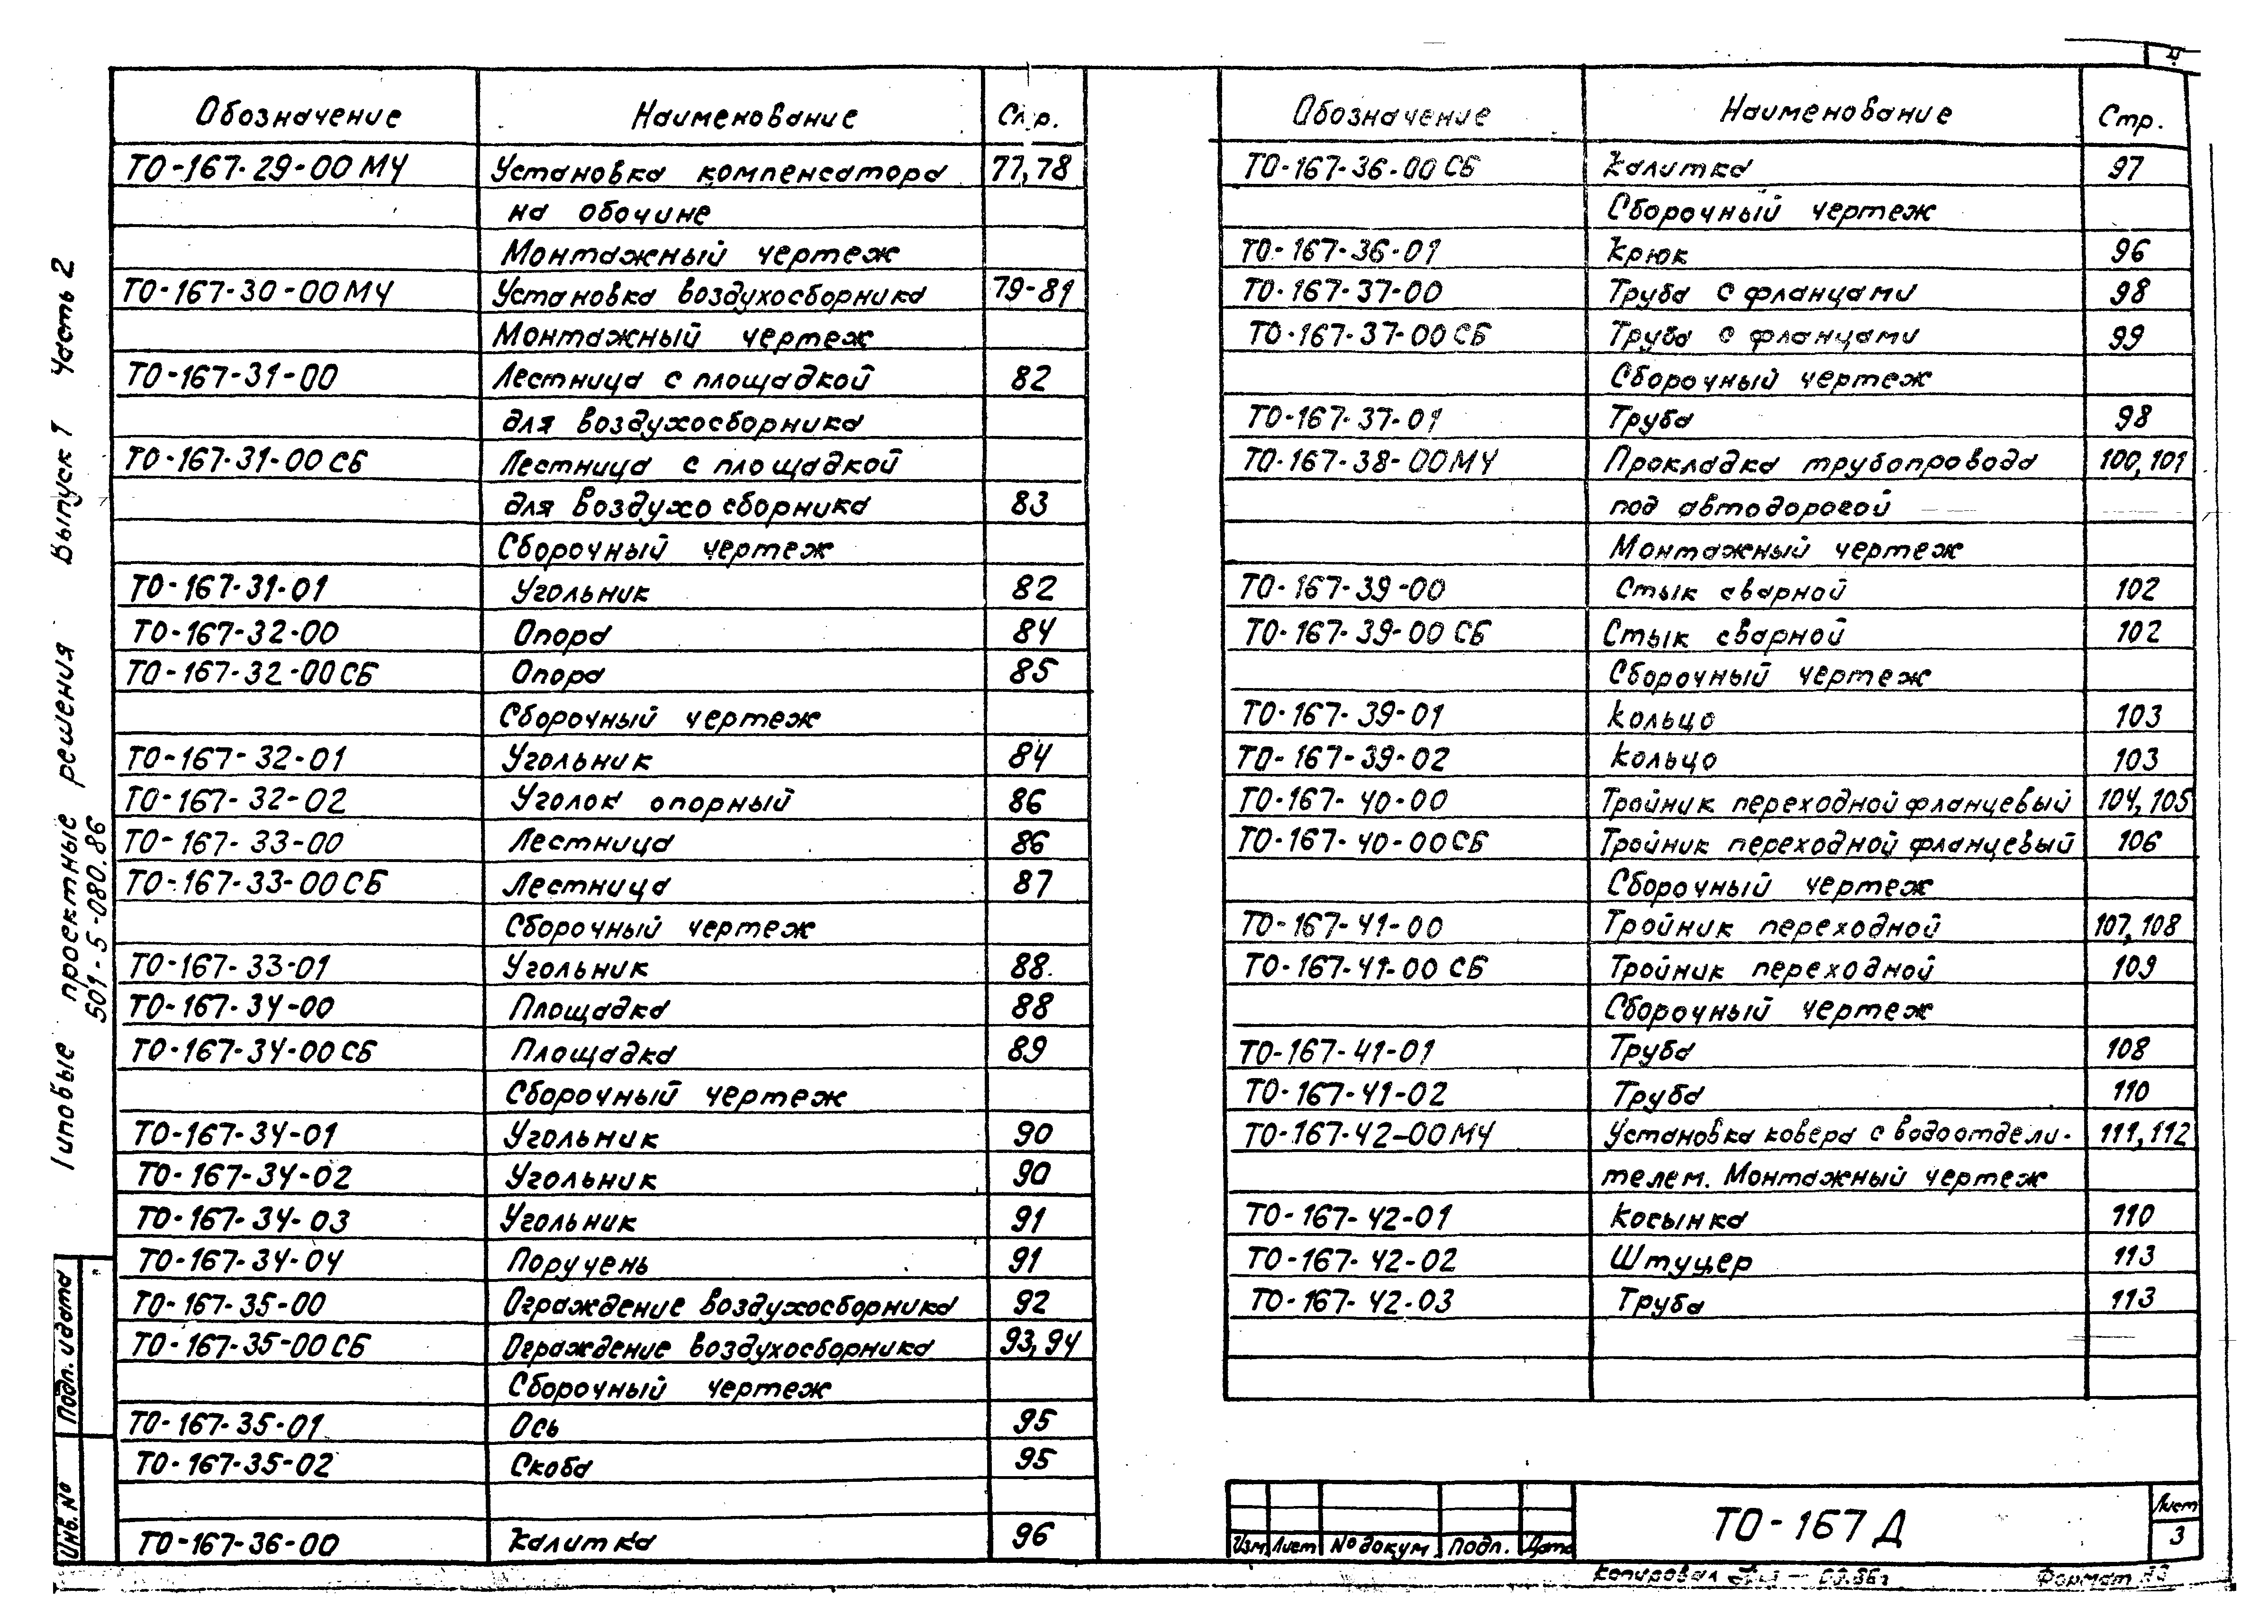 4
Типовые проектные решения Выпуск 1 Часть 2
501-5-080.86
Обозначение Наименование Стр.
ТО-167-29-00 МЧ Установка компенсатора 77,78
на обочине
Монтажный чертеж
ТО-167-30-00 МЧ Установка воздухосборника 79-81
Монтажный чертеж
ТО-167-31-00 Лестница с площадкой 82
для воздухосборника
ТО-167-31-00 СБ Лестница с площадкой
для воздухосборника 83
Сборочный чертеж
ТО-167-31-01 Угольник 82
ТО-167-32-00 Опора 84
ТО-167-32-00 СБ Опора 85
Сборочный чертеж
ТО-167-32-01 Угольник 84
ТО-167-32-02 Уголок опорный 86
ТО-167-33-00 Лестница 86
ТО-167-33-00 СБ Лестница 87
Сборочный чертеж
ТО-167-33-01 Угольник 88
ТО-167-34-00 Площадка 88
ТО-167-34-00 СБ Площадка 89
Сборочный чертеж
ТО-167-34-01 Угольник 90
ТО-167-34-02 Угольник 90
ТО-167-34-03 Угольник 91
ТО-167-34-04 Поручень 91
ТО-167-35-00 Ограждение воздухосборника 92
ТО-167-35-00 СБ Ограждение воздухосборника 93,94
Сборочный чертеж
ТО-167-35-01 Ось 95
ТО-167-35-02 Скоба 95
ТО-167-36-00 Калитка 96
Обозначение Наименование Стр.
ТО-167-36-00 СБ Калитка 97
Сборочный чертеж
ТО-167-36-01 Крюк 96
ТО-167-37-00 Труба с фланцами 98
ТО-167-37-00 СБ Труба с фланцами 99
Сборочный чертеж
ТО-167-37-01 Труба 98
ТО-167-38-00 МЧ Прокладка трубопровода 100,101
под автодорогой
Монтажный чертеж
ТО-167-39-00 Стык сварной 102
ТО-167-39-00 СБ Стык сварной 102
Сборочный чертеж
ТО-167-39-01 Кольцо 103
ТО-167-39-02 Кольцо 103
ТО-167-40-00 Тройник переходной фланцевый 104,105
ТО-167-40-00 СБ Тройник переходной фланцевый 106
Сборочный чертеж
ТО-167-41-00 Тройник переходной 107,108
ТО-167-41-00 СБ Тройник переходной 109
Сборочный чертеж
ТО-167-41-01 Труба 108
ТО-167-41-02 Труба 110
ТО-167-42-00 МЧ Установка ковера с водоотдели- 111,112
телем. Монтажный чертеж
ТО-167-42-01 Косынка 110
ТО-167-42-02 Штуцер 113
ТО-167-42-03 Труба 113
Инв. № Подп. и дата
Изм. Лист № докум. Подп. Дата
ТО-167 Д
Лист
3
Копировал 09.86г
Формат А3